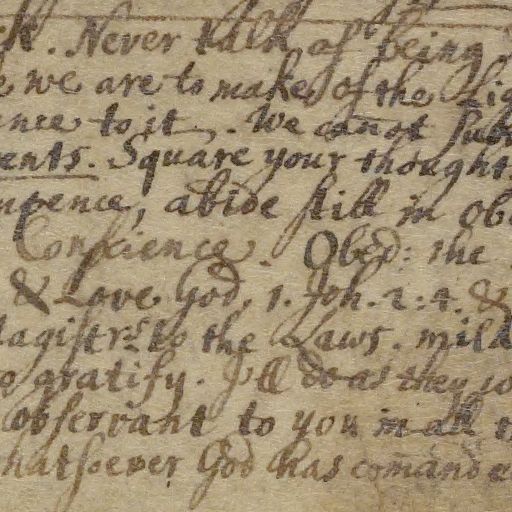 Never talk of being
we are to make of the
ence to it. We canot Sub
ents. Square your thoughts
, abide still in ob
Conscience. Obed: the
& Love God. 1. Joh. 2:4. &
Magistrs. to the Laws. mild
o gratify. I'll do as they
observant to you in all
hatsoever God has comanded